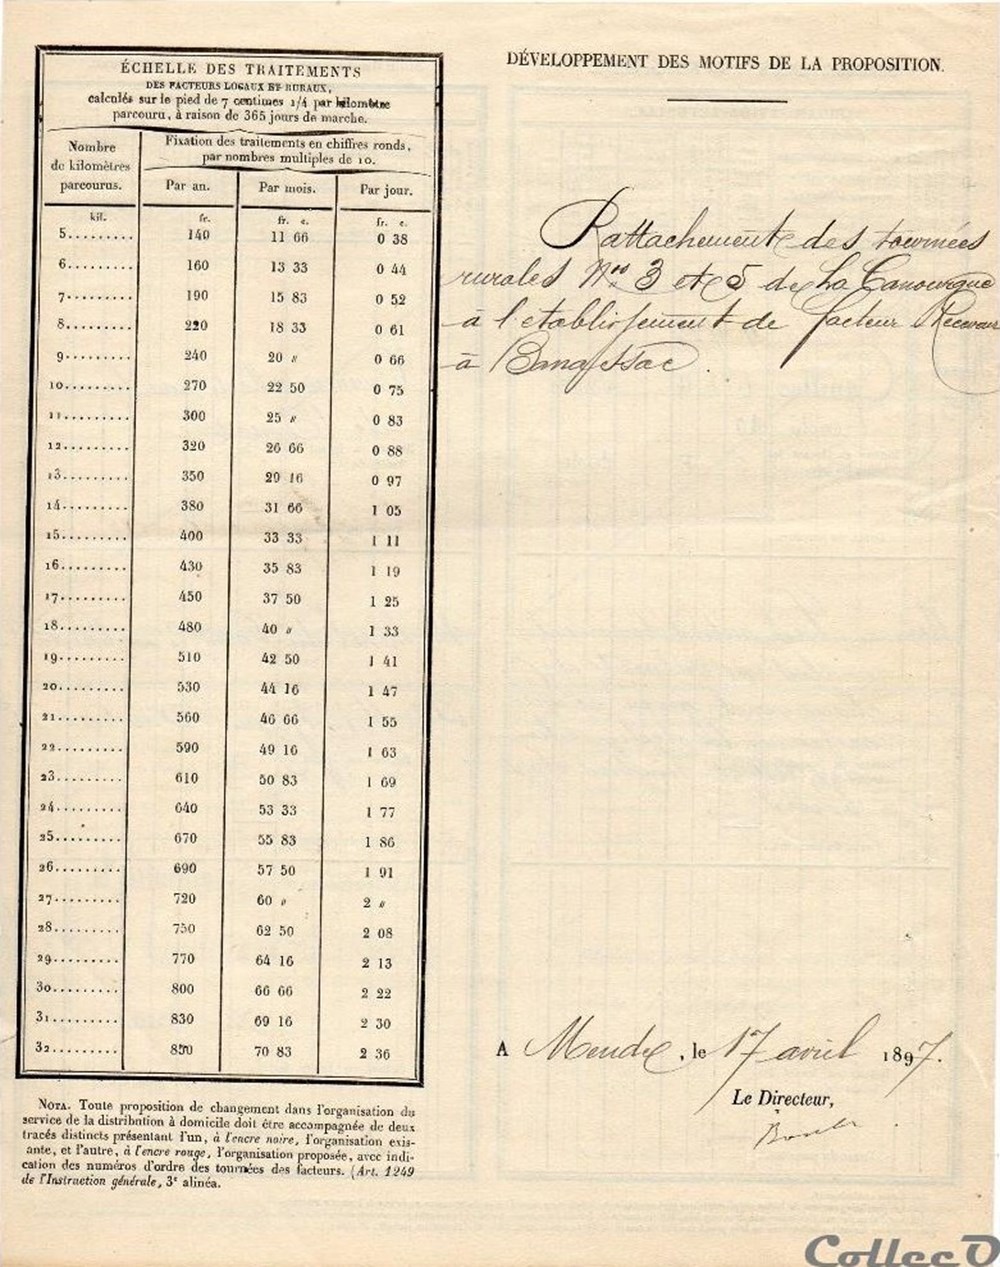 ÉCHELLE DES TRAITEMENTS
DES FACTEURS LOCAUX ET RURAUX,
calculés sur le pied de 7 centimes 1/4 par kilomètre
parcouru, à raison de 365 jours de marche.
Nombre
de kilomètres
parcourus.
Fixation des traitements en chiffres ronds,
par nombres multiples de 10.
Par an. Par mois. Par jour.
kil. fr. fr. c. fr. c.
5......... 140 11 66 0 38
6......... 160 13 33 0 44
7......... 190 15 83 0 52
8......... 220 18 33 0 61
9......... 240 20 " 0 66
10......... 270 22 50 0 75
11......... 300 25 " 0 83
12......... 320 26 66 0 88
13......... 350 29 16 0 97
14......... 380 31 66 1 05
15......... 400 33 33 1 11
16......... 430 35 83 1 19
17......... 450 37 50 1 25
18......... 480 40 " 1 33
19......... 510 42 50 1 41
20......... 530 44 16 1 47
21......... 560 46 66 1 55
22......... 590 49 16 1 63
23......... 610 50 83 1 69
24......... 640 53 33 1 77
25......... 670 55 83 1 86
26......... 690 57 50 1 91
27......... 720 60 " 2 "
28......... 750 62 50 2 08
29......... 770 64 16 2 13
30......... 800 66 66 2 22
31......... 830 69 16 2 30
32......... 850 70 83 2 36
NOTA. Toute proposition de changement dans l'organisation du
service de la distribution à domicile doit être accompagnée de deux
tracés distincts présentant l'un, à l'encre noire, l'organisation exis-
ante, et l'autre, à l'encre rouge, l'organisation proposée, avec indi-
cation des numéros d'ordre des tournées des facteurs. (Art. 1249
de l'Instruction générale, 3e alinéa.
DÉVELOPPEMENT DES MOTIFS DE LA PROPOSITION.
Rattachement des tournées
rurales Nos 3 et 5 de La Canourgue
à l'établissement de facteur Receveur
à Banassac.
A Mende, le 17 avril 1897.
Le Directeur,
CollecO